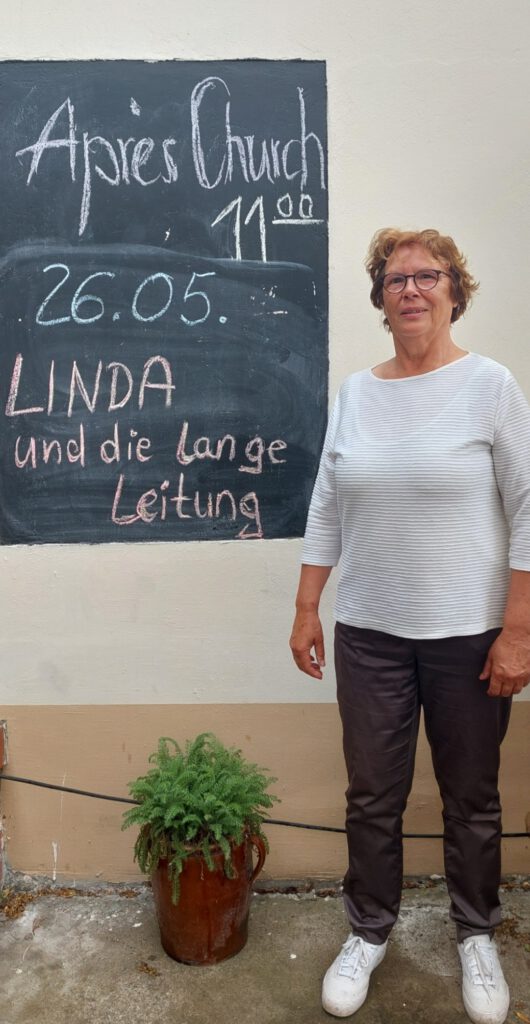 Après Church
11 00
26.05.
LINDA
und die lange
Leitung